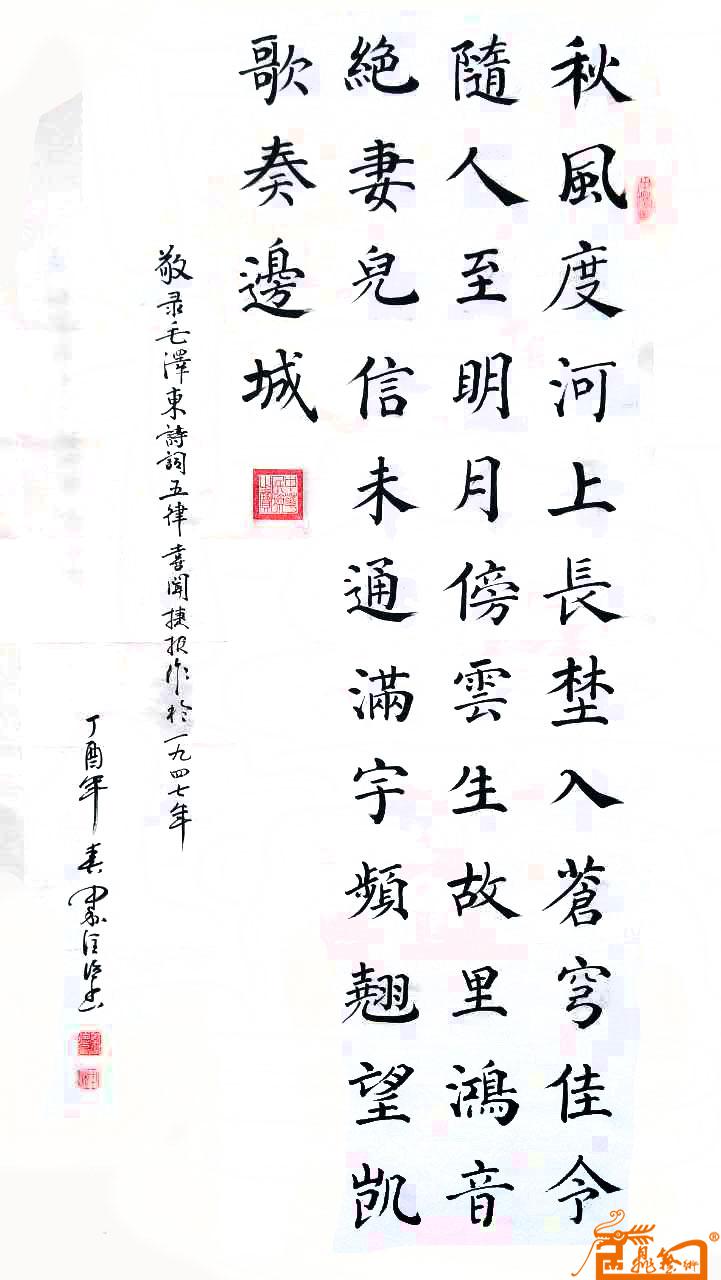 秋風度河上長埜入蒼穹佳令
隨人至明月傍雲生故里鴻音
絶妻兒信未通滿宇頻翹望凱
歌奏邊城
敬录毛澤東詩詞五律喜聞捷报作於一九四七年
丁酉年春